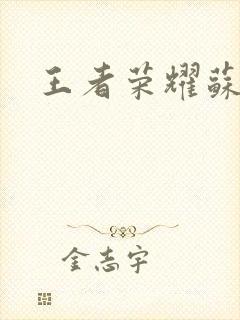 王者荣耀蘇
金志宇